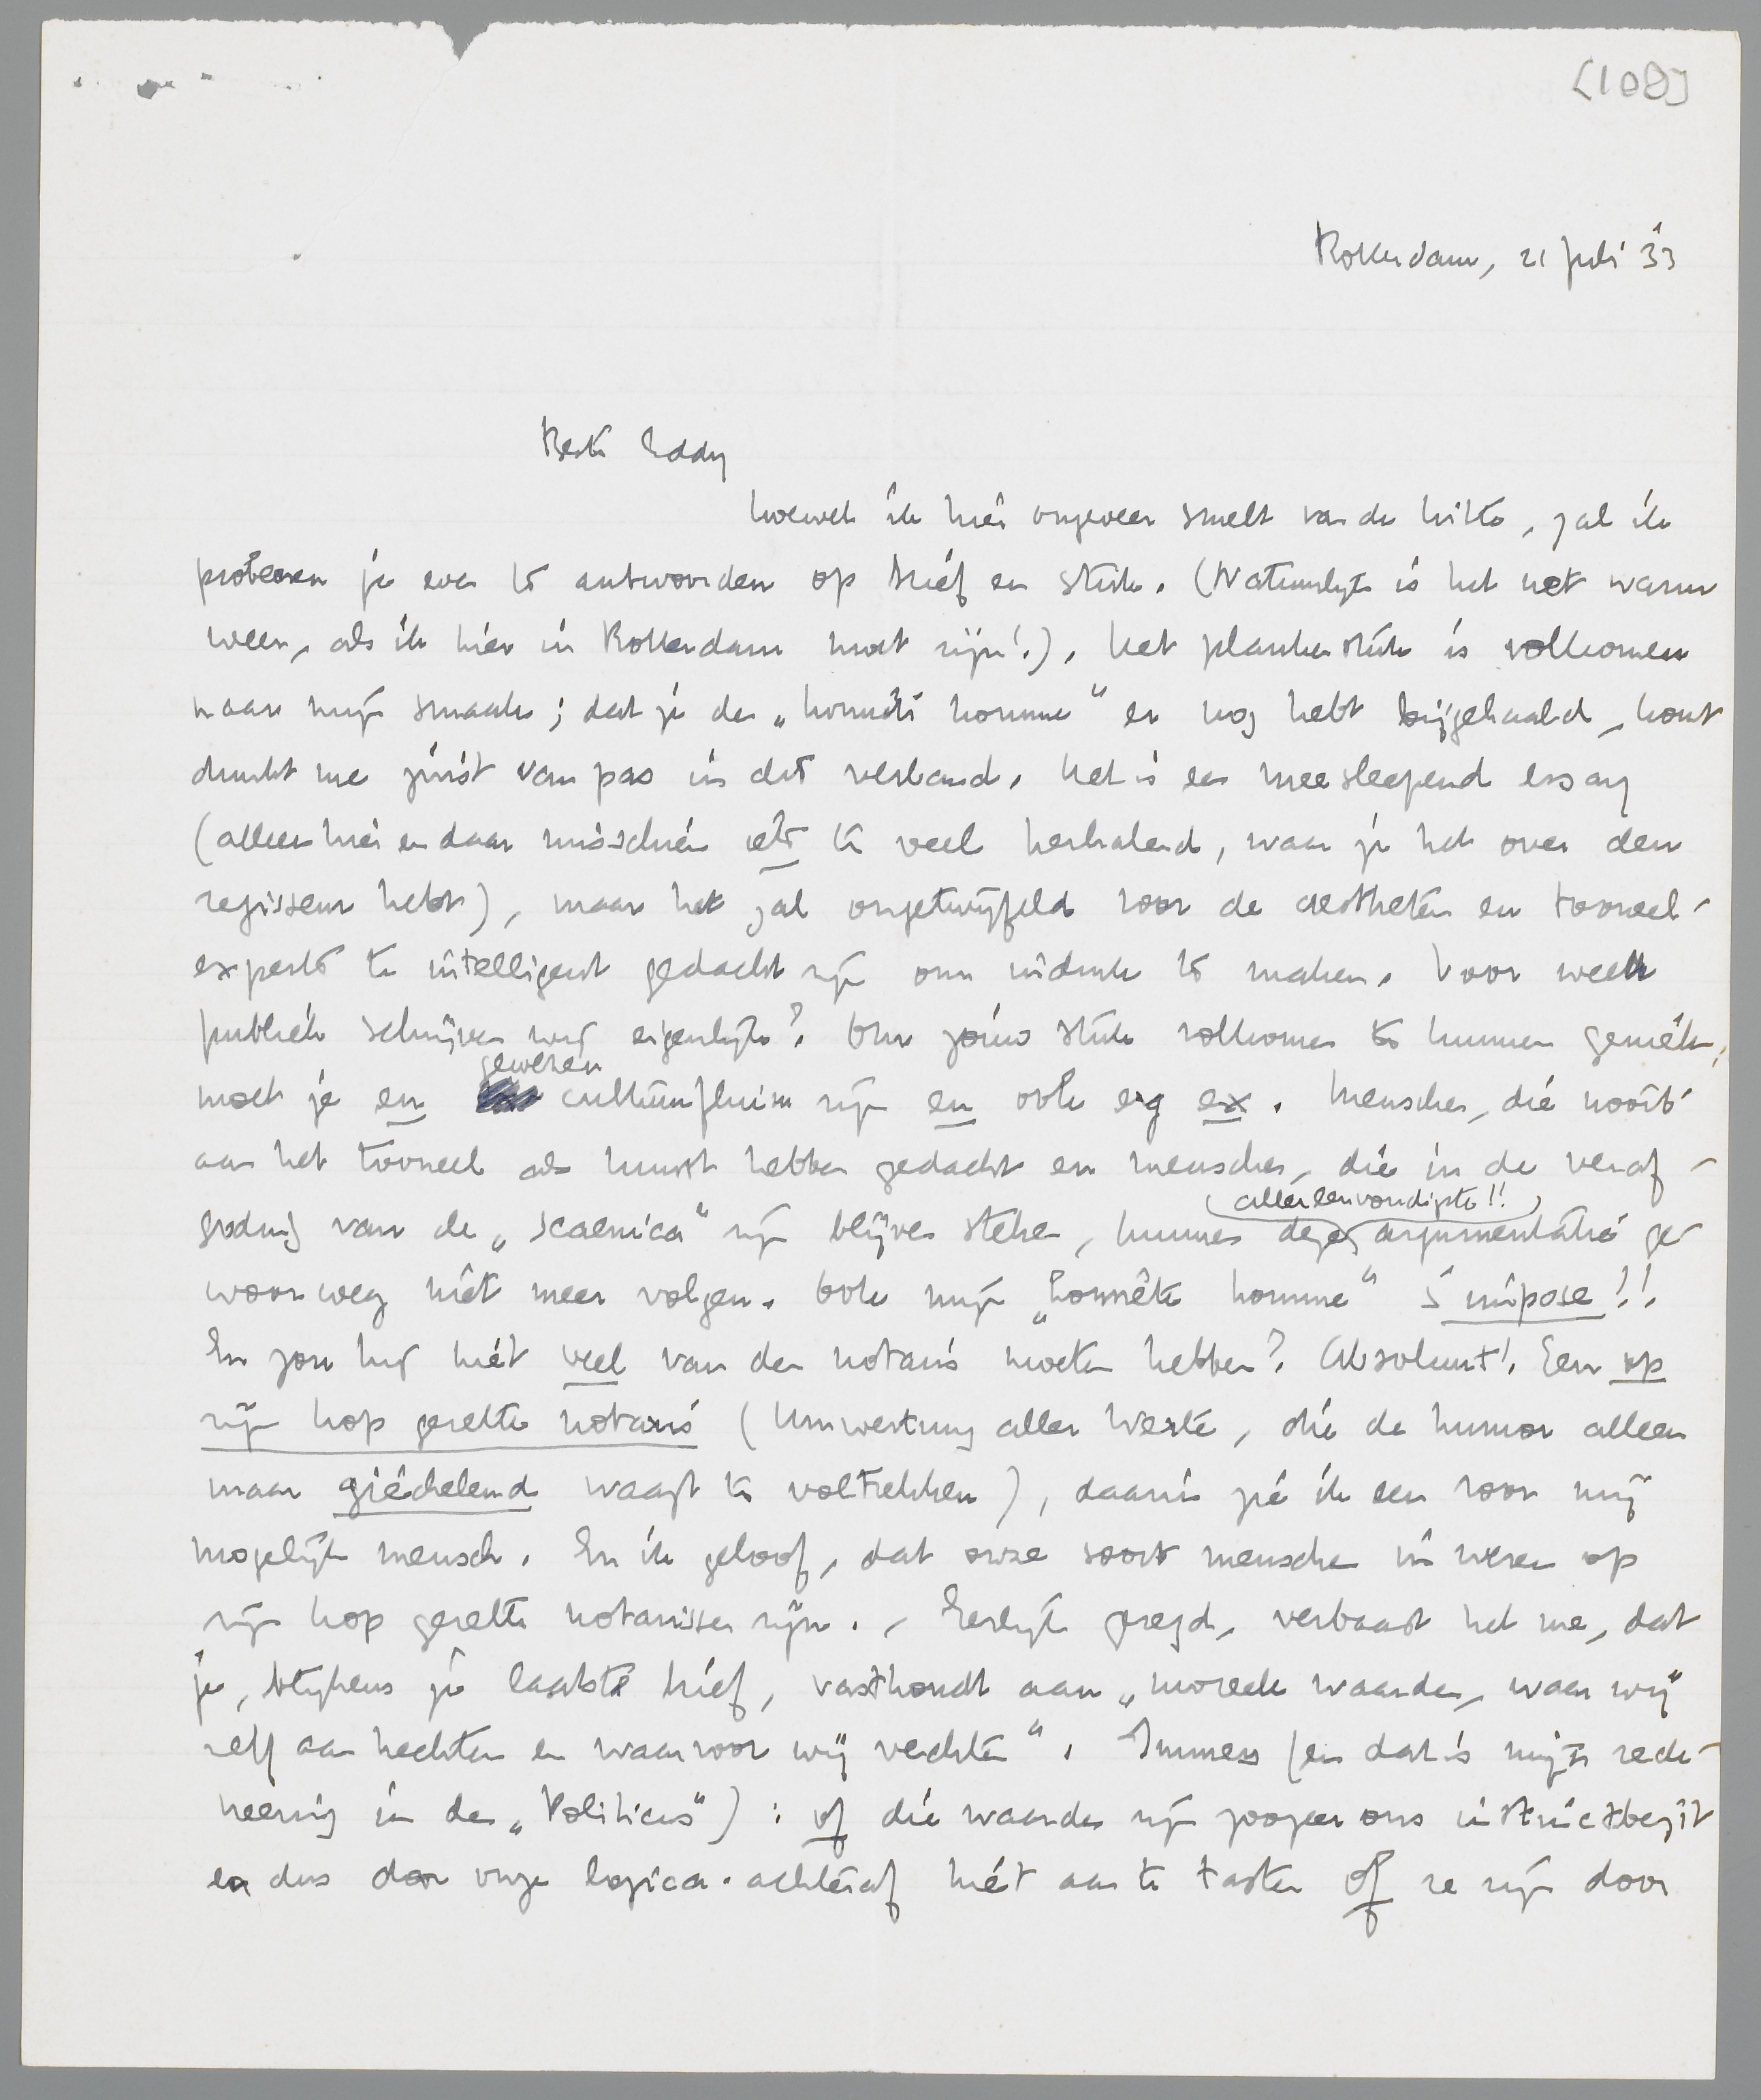 [108]
Rotterdam, 21 Juli '33
Beste Eddy
hoewel ik hier ongeveer smelt van de hitte, zal ik
probeeren je even te antwoorden op brief en stuk. (Natuurlijk is het net warm
weer, als ik hier in Rotterdam moet zijn!). Het plankenstuk is volkomen
naar mijn smaak; dat je den „honnête homme" er nog hebt bijgehaald, komt
dunkt me juist van pas in dit verband. Het is een meesleepend essay
(alleen hier en daar misschien iets te veel herhalend, waar je het over den
regisseur hebt), maar het zal ongetwijfeld voor de aestheten en tooneel-
experts te intelligent gedacht zijn om indruk te maken. Voor welk
publiek schrijven wij eigenlijk? Om jóúw stuk volkomen te kunnen genieten,
moet je en gewezen cultuurfluim zijn en ook erg ex. Menschen, die nooit
aan het tooneel als kunst hebben gedacht en menschen, die in de veraf-
goding van de „scaenica" zijn blijven steken, kunnen deze (allereenvoudigste!!) argumentatie ge-
woonweg niet meer volgen. Ook mijn „honnête homme" s'impose!!
En zou hij niet veel van den notaris moeten hebben? Absoluut! Een op
zijn kop gezette notaris (Umwertung aller Werte, die de humor alleen
maar giechelend waagt te voltrekken), daarin zie ik een voor mij
mogelijk mensch. En ik geloof, dat onze soort menschen in wezen op
zijn kop gezette notarissen zijn. - Eerlijk gezegd, verbaast het me, dat
je, blijkens je laatste brief, vasthoudt aan „moreele waarden, waar wij
zelf aan hechten en waarvoor wij vechten". Immers (en dat is mijn rede-
neering in den „Politicus"): of die waarden zijn zoozeer ons instinctbezit
en dus door onze logica-achteraf niet aan te tasten of ze zijn door